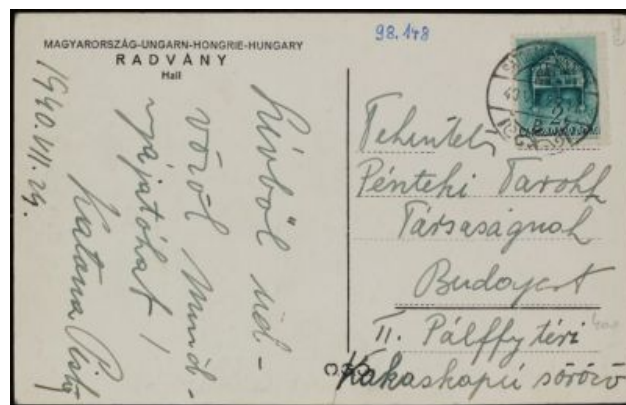 MAGYARORSZÁG-UNGARN-HONGRIE-HUNGARY
RADVÁNY
Hall
98.148
1940.VII.29.
Szívből üd-
vözöl Mind-
nyájatokat!
Katona Pista
Tekintetes
Pénteki Tarokk
Társaságnak
Budapest
II. Pálffy téri
Kakaskapui söröző